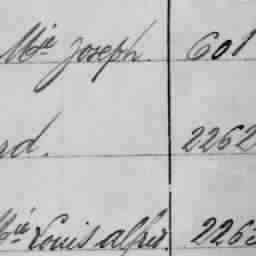 Mie Joseph. 601
rd. 2262
Mie Louis Alfred. 2263